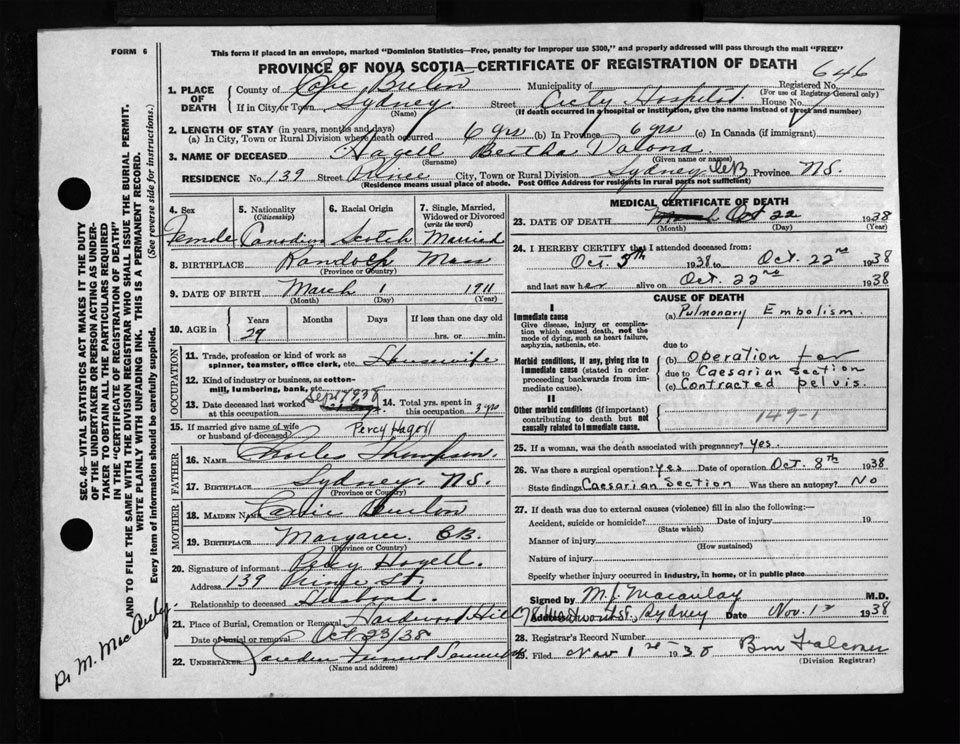 FORM 6
This form if placed in an envelope, marked "Dominion Statistics—Free, penalty for improper use $300," and properly addressed will pass through the mail "FREE"
PROVINCE OF NOVA SCOTIA—CERTIFICATE OF REGISTRATION OF DEATH 646
1. PLACE OF DEATH
County of Cape Breton Municipality of Registered No.
(For use of Registrar-General only)
If in City or Town Sydney (Name) Street City Hospital House No.
(If death occurred in a hospital or institution, give the name instead of street and number)
2. LENGTH OF STAY (in years, months and days)
(a) In City, Town or Rural Division where death occurred 6 yrs (b) In Province 6 yrs (c) In Canada (if immigrant)
3. NAME OF DECEASED Hagell Bertha
(Surname) (Given name or names)
RESIDENCE No. 139 Street Prince City, Town or Rural Division Sydney C.B. Province N.S.
(Residence means usual place of abode. Post Office Address for residents in rural parts not sufficient)
4. Sex Female
5. Nationality (Citizenship) Canadian
6. Racial Origin Scotch
7. Single, Married, Widowed or Divorced (write the word) Married
8. BIRTHPLACE Mass
(Province or Country)
9. DATE OF BIRTH March 1 1911
(Month) (Day) (Year)
10. AGE in Years Months Days If less than one day old
29 hrs. or min.
OCCUPATION
11. Trade, profession or kind of work as spinner, teamster, office clerk, etc. Housewife
12. Kind of industry or business, as cotton-mill, lumbering, bank, etc.
13. Date deceased last worked at this occupation Sept 1938
14. Total yrs. spent in this occupation 3 yrs
15. If married give name of wife or husband of deceased Percy Hagell
FATHER
16. NAME Charles Thompson
17. BIRTHPLACE Sydney N.S.
(Province or Country)
MOTHER
18. MAIDEN NAME
19. BIRTHPLACE Margaree C.B.
(Province or Country)
20. Signature of informant Percy Hagell
Address 139 Prince St.
Relationship to deceased Husband
21. Place of Burial, Cremation or Removal Hardwood Hill
Date of burial or removal Oct 23/38
22. UNDERTAKER
(Name and address)
MEDICAL CERTIFICATE OF DEATH
23. DATE OF DEATH Oct 22 1938
(Month) (Day) (Year)
24. I HEREBY CERTIFY that I attended deceased from:
Oct. 5th 1938 to Oct. 22nd 1938
and last saw her alive on Oct. 22nd 1938
CAUSE OF DEATH
I
Immediate cause (a) Pulmonary Embolism.
Give disease, injury or complication which caused death, not the mode of dying, such as heart failure, asphyxia, asthenia, etc.
due to
Morbid conditions, if any, giving rise to immediate cause (stated in order proceeding backwards from immediate cause).
(b) Operation for
due to Caesarian Section
(c) Contracted pelvis.
II
Other morbid conditions (if important) contributing to death but not causally related to immediate cause.
149-1
25. If a woman, was the death associated with pregnancy? Yes.
26. Was there a surgical operation? Yes Date of operation Oct. 8th 1938
State findings Caesarian Section Was there an autopsy? No
27. If death was due to external causes (violence) fill in also the following:—
Accident, suicide or homicide? Date of injury 19
(State which)
Manner of injury
(How sustained)
Nature of injury
Specify whether injury occurred in industry, in home, or in public place
Signed by M. J. Macaulay M.D.
Address Sydney Date Nov. 1st 1938
28. Registrar's Record Number
29. Filed Nov 1st 1938 Falconer
(Division Registrar)
SEC. 46—VITAL STATISTICS ACT MAKES IT THE DUTY
OF THE UNDERTAKER OR PERSON ACTING AS UNDER-
TAKER TO OBTAIN ALL THE PARTICULARS REQUIRED
IN THE "CERTIFICATE OF REGISTRATION OF DEATH"
AND TO FILE THE SAME WITH THE DIVISION REGISTRAR WHO SHALL ISSUE THE BURIAL PERMIT.
WRITE PLAINLY WITH UNFADING INK. THIS IS A PERMANENT RECORD.
Every item of information should be carefully supplied. (See reverse side for instructions.)
Dr. M. MacAulay.